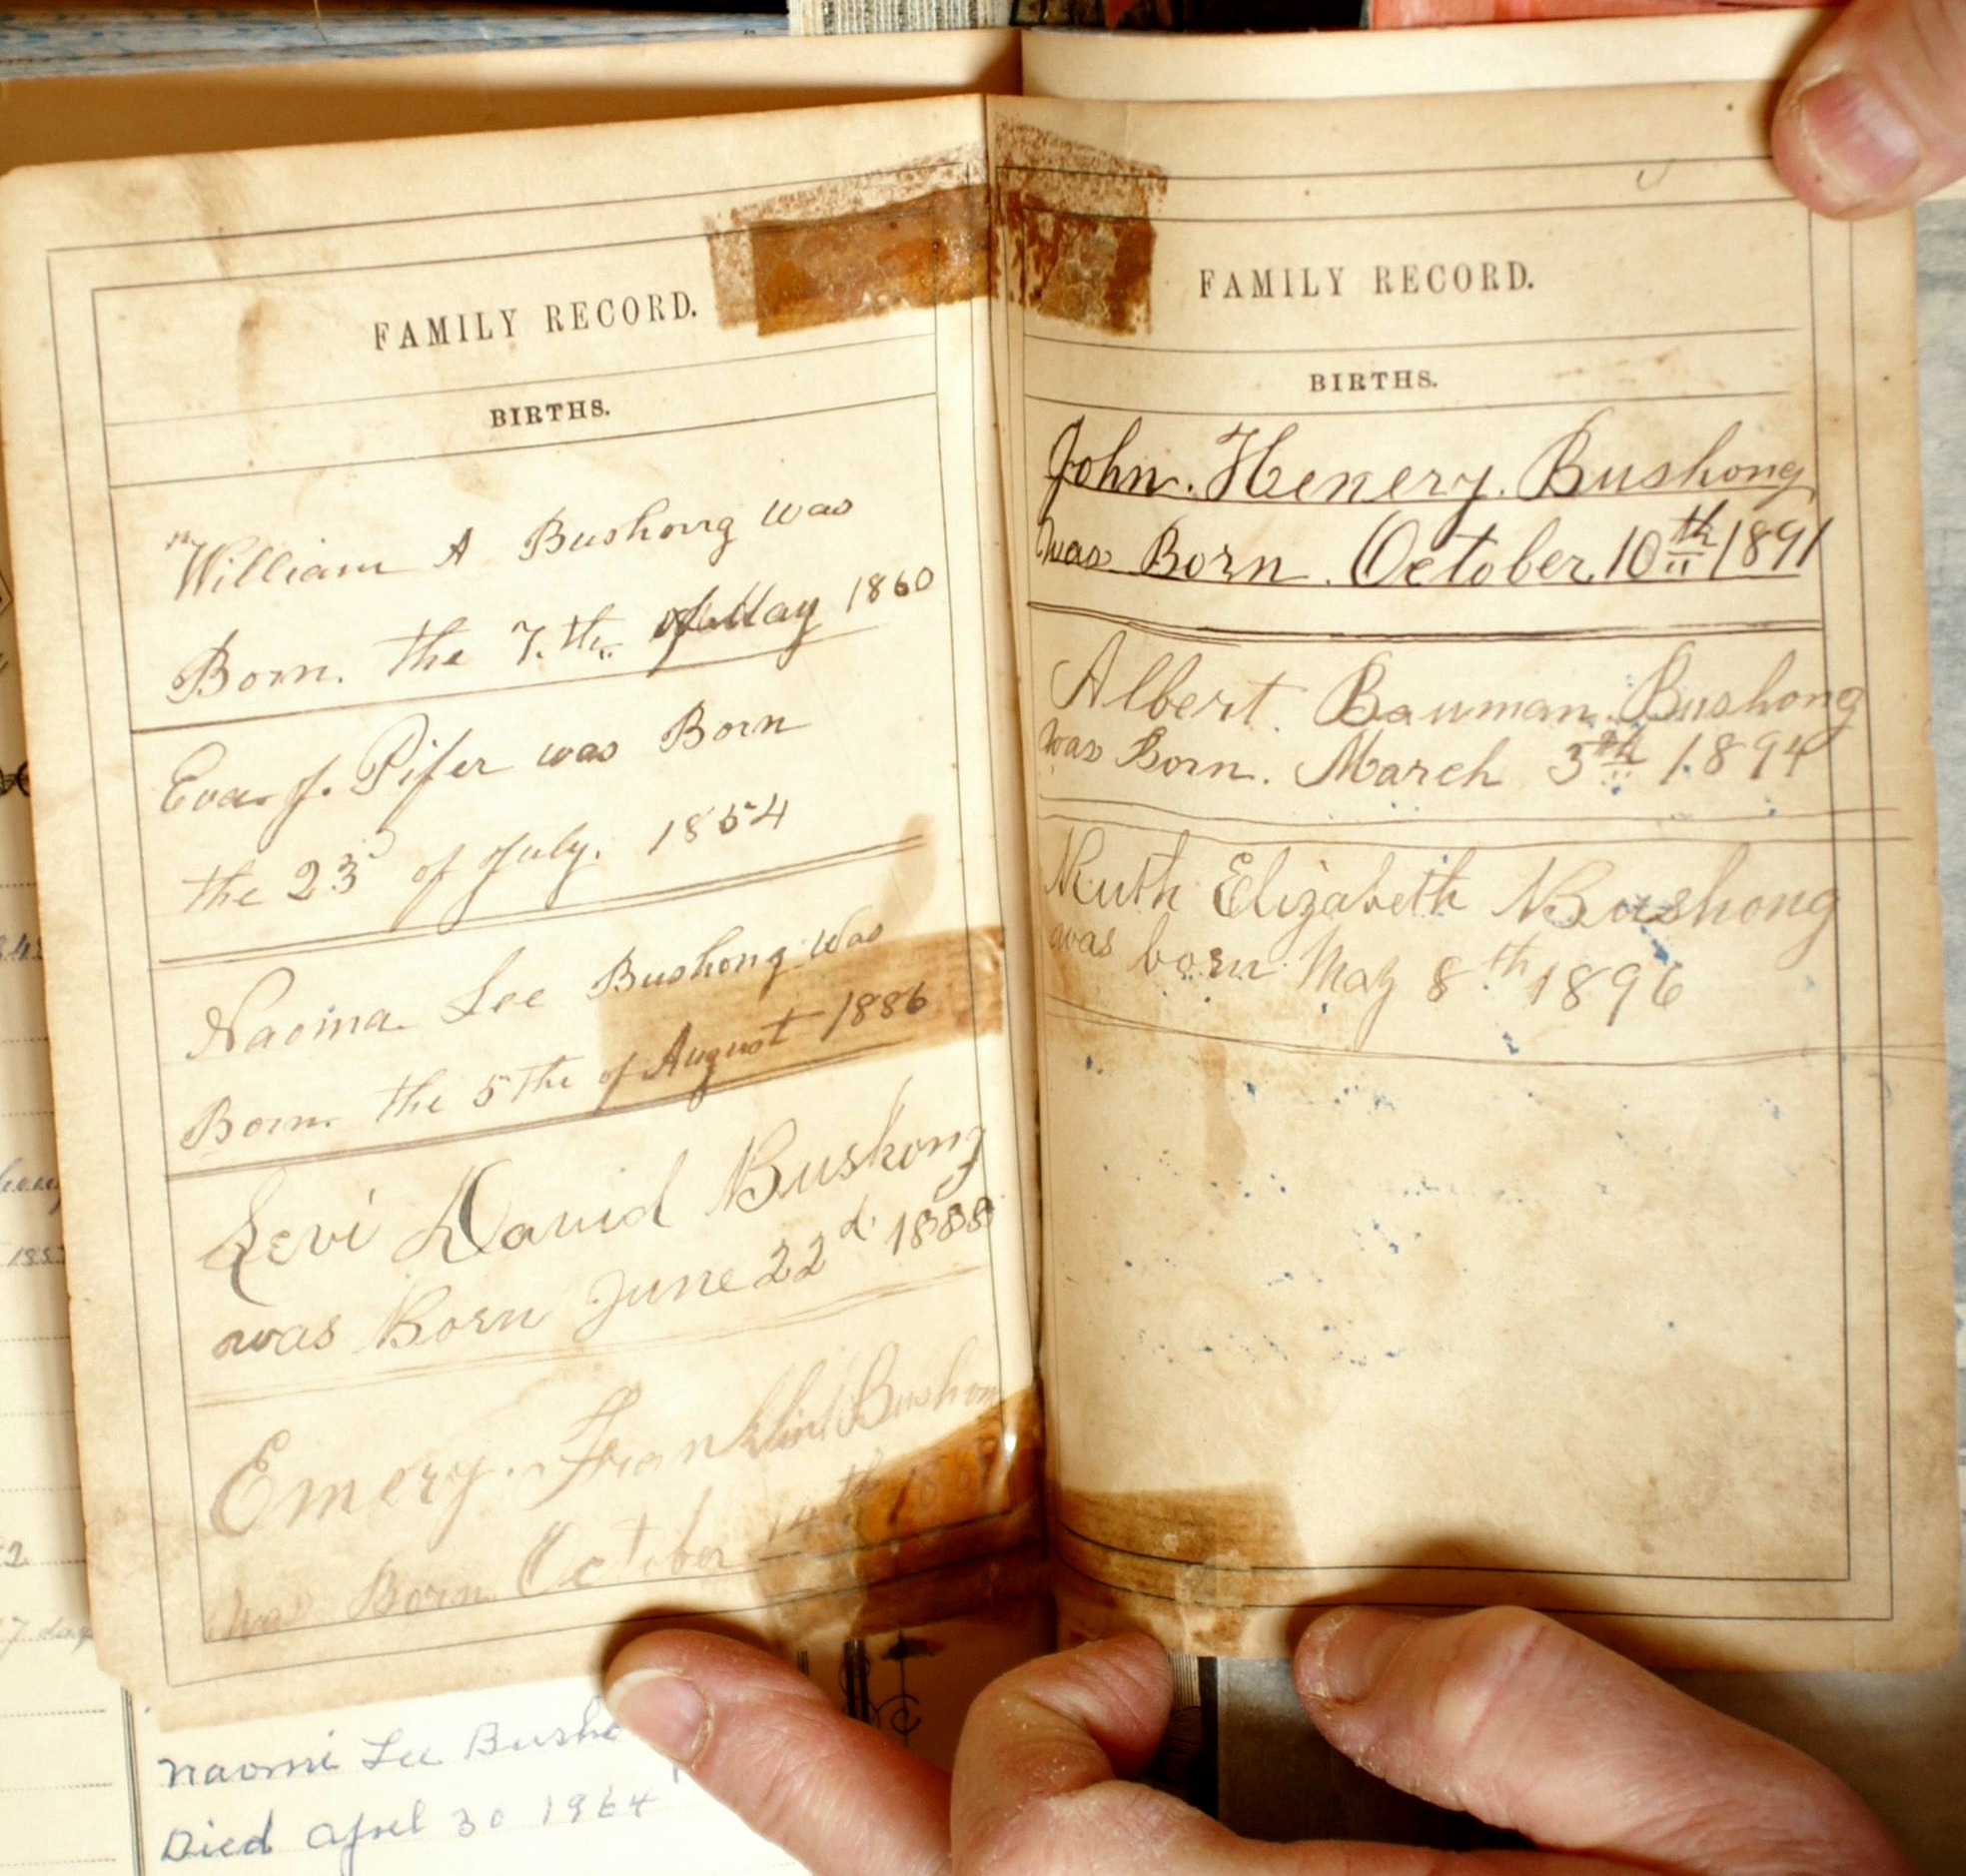 FAMILY RECORD.
BIRTHS.
William A Bushong was
Born. the 7.th of May 1860
Eva. J. Pifer was Born
the 23 of July. 1854
Naoma Lee Bushong was
Born. the 5 The of August 1886
Levi David Bushong
was Born June 22d. 1888
Emery. Franklin Bushon
was Born October 14th
FAMILY RECORD.
BIRTHS.
John. Henery. Bushong
was Born. October. 10th 1891
Albert. Bauman. Bushong
was Born. March 3th 1894
Ruth Elizabeth Bushong
was born May 8th 1896
Naomi Lee Busho
Died April 30 1964